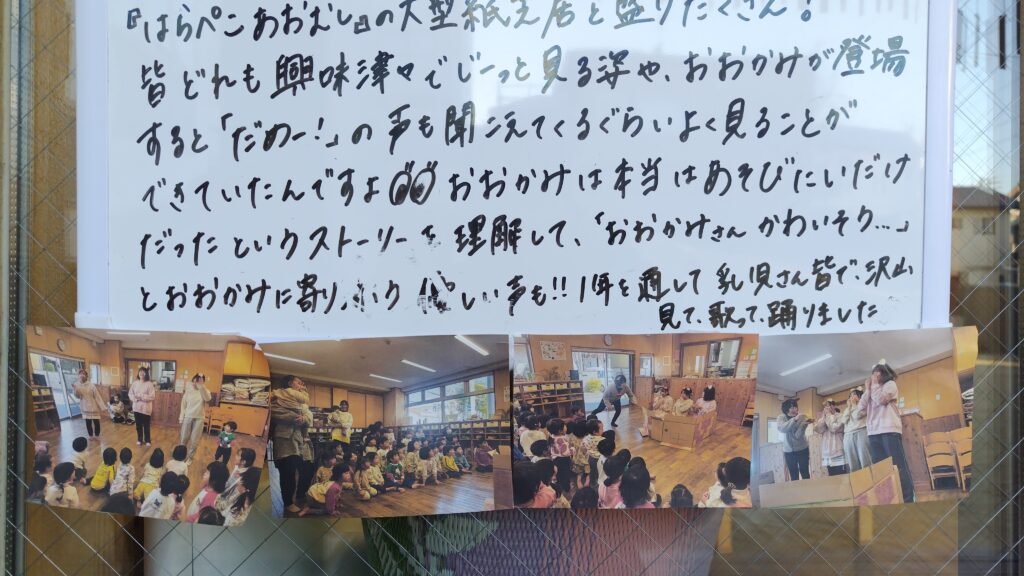 『はらぺこあおむし』の大型紙芝居と盛りだくさん！
皆どれも興味津々でじーっと見る姿や、おおかみが登場
すると「だめー！」の声も聞こえてくるぐらいよく見ることが
できていたんですよ おおかみは本当はあそびにいだけ
だったというストーリーを理解して、「おおかみさんかわいそう…」
とおおかみに寄りそう 優しい声も!! 1年を通して乳児さん皆で、沢山
見て、歌って、踊りました